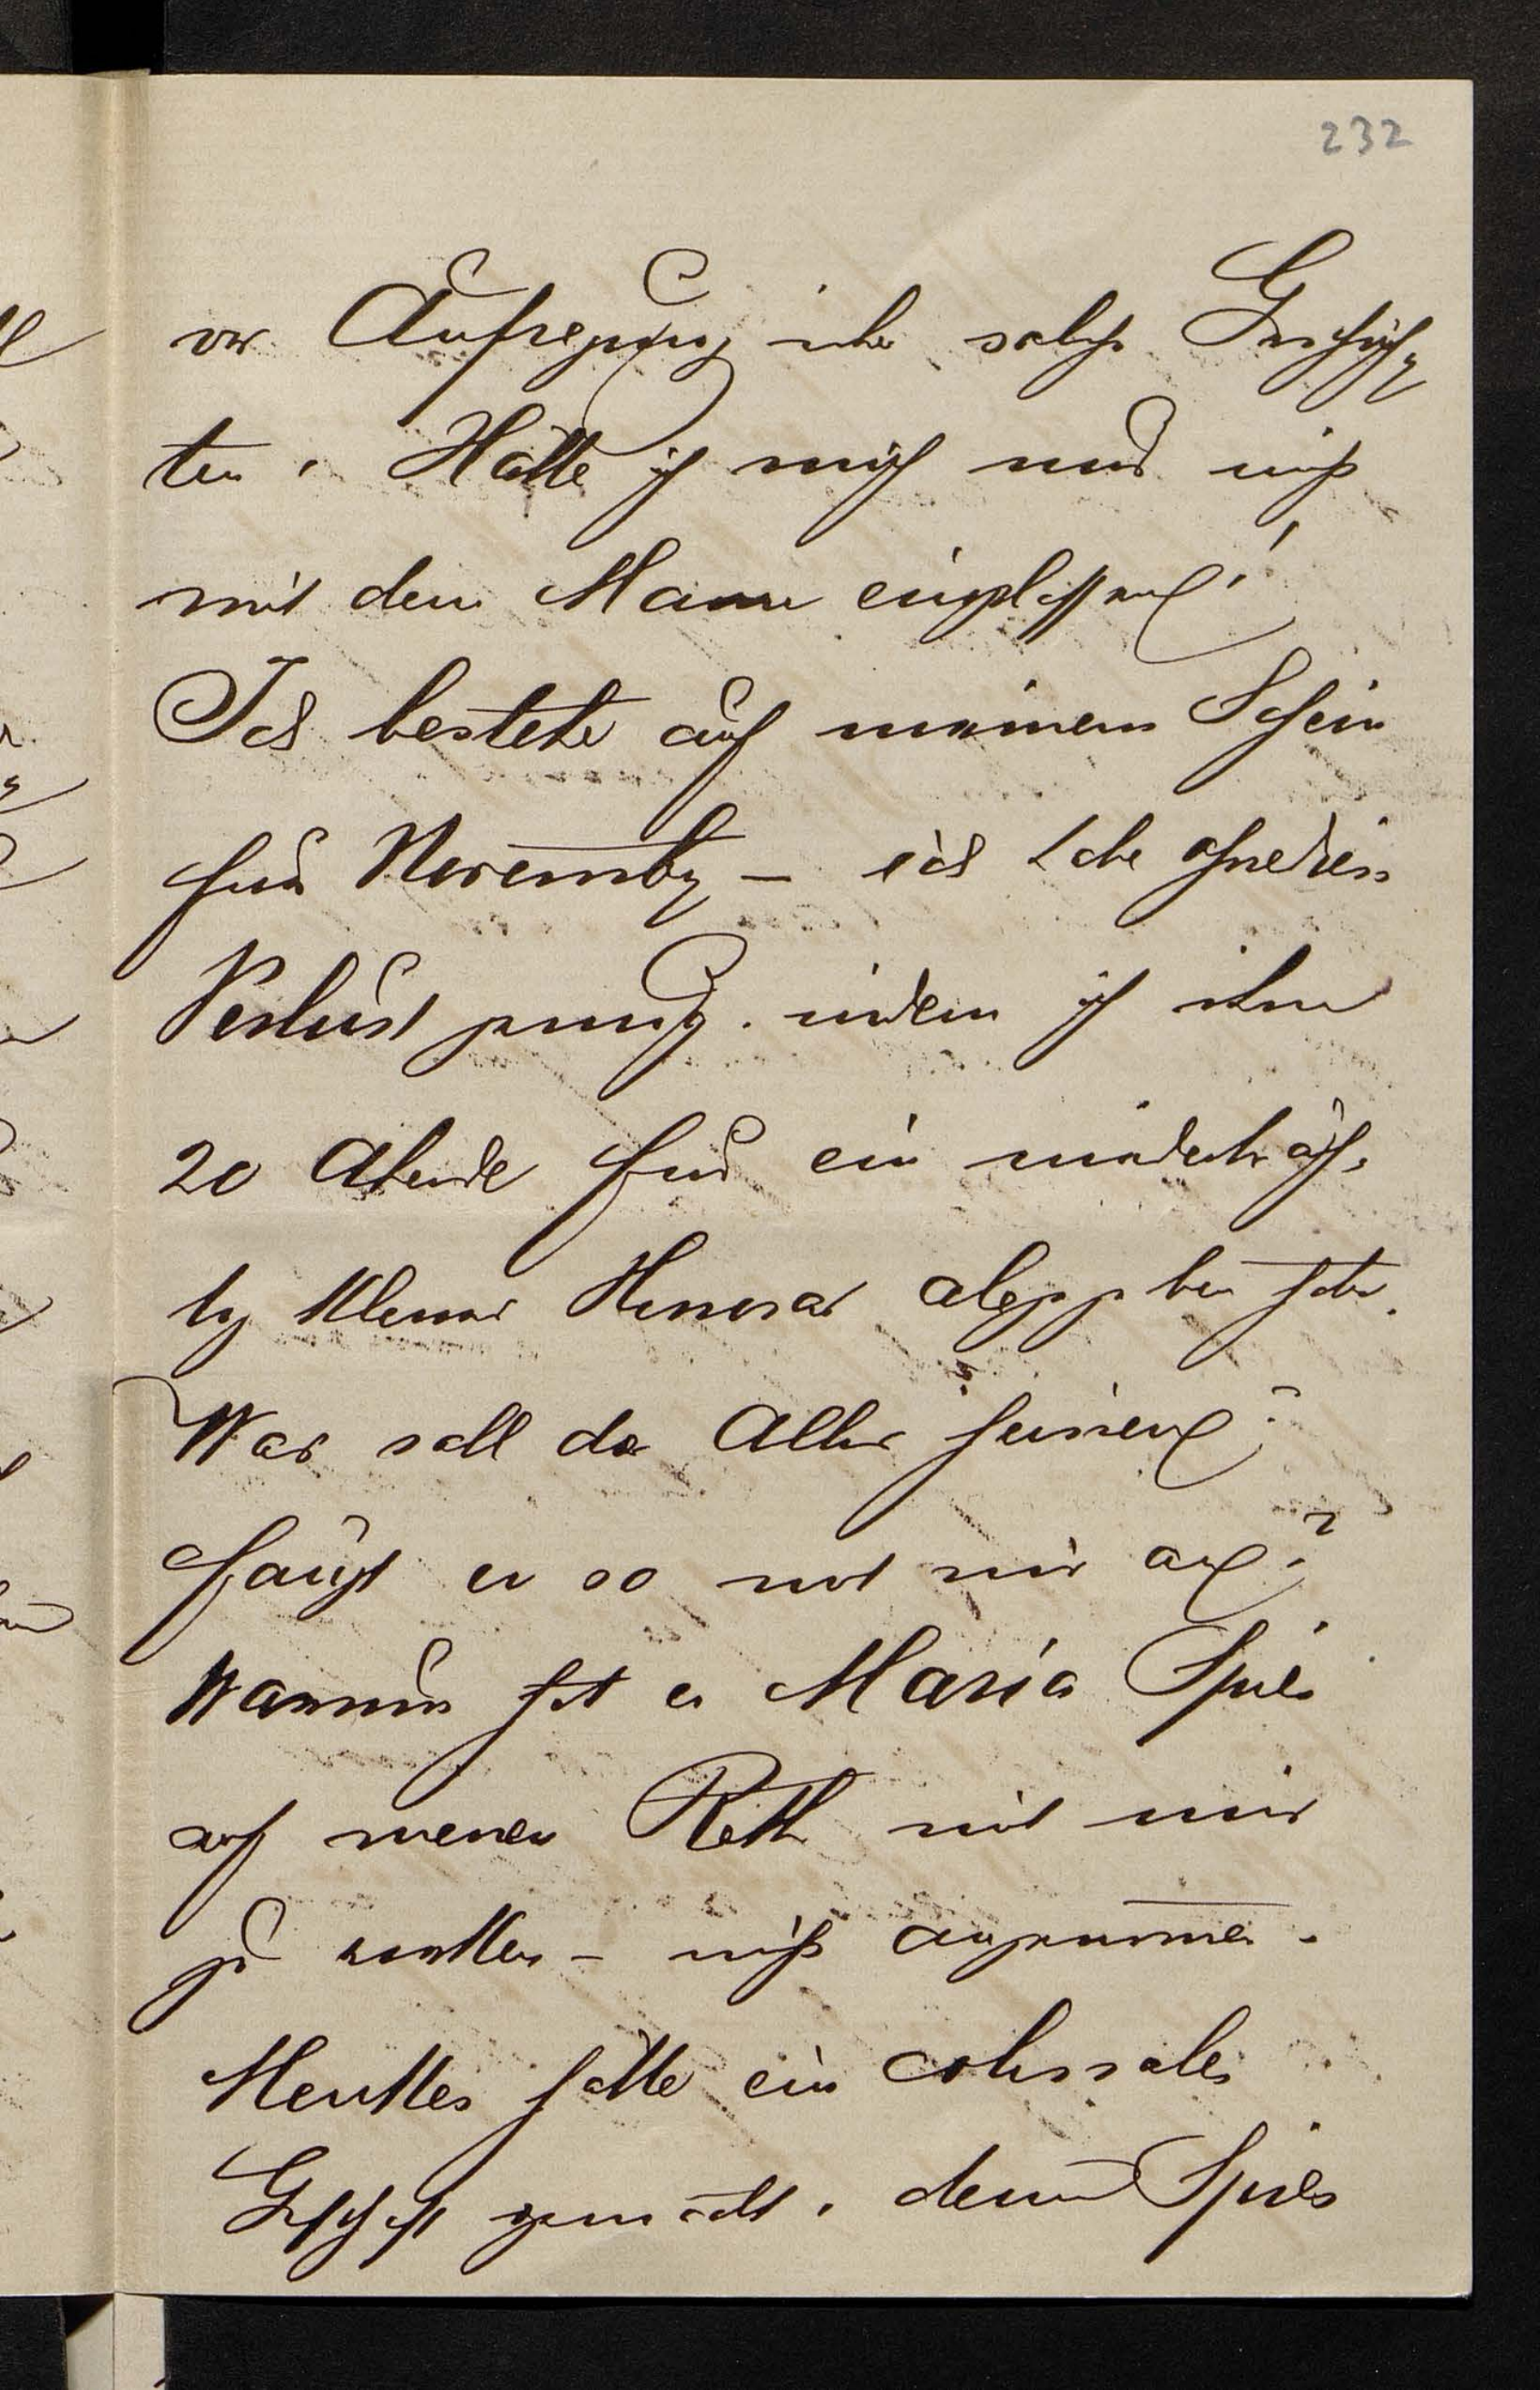 232
vor Aufregung über solche Geschich-
ten. Hätte ich mich nur nicht
mit dem Manne eingelassen!
Ich bestehe auf meinem Schein
für November – ich habe ohnedies
Verlust genug. indem ich ihm
20 Abende für ein
kleines Honorar abgegeben habe.
Was soll da Alles heissen?
fängt er so mit mir an?
Warum hat er Maria Spies
auf meinen Rath mit mir
zu – nicht angenommen.
hätte ein colossales
Geschäft gemacht. denn Spies